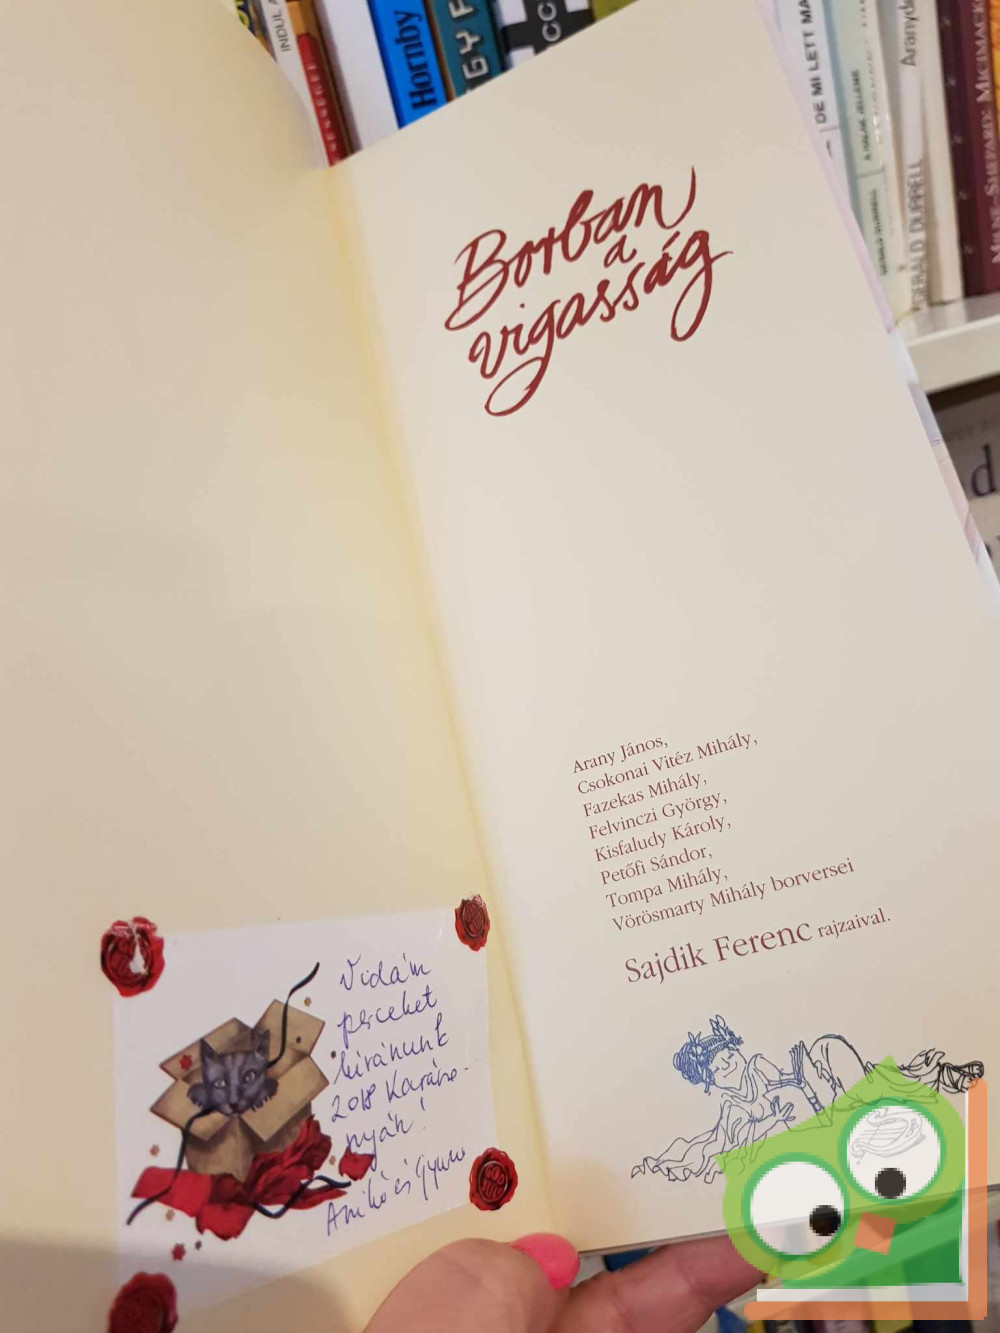 INDUL A
Hornby
GY F
CC
DE MI LETT MA
Aranyd
GERALD DURRELL
MILNE-SHEPARD: MICIMACK
Borban
a
vigasság
Arany János,
Csokonai Vitéz Mihály,
Fazekas Mihály,
Felvinczi György,
Kisfaludy Károly,
Petőfi Sándor,
Tompa Mihály,
Vörösmarty Mihály borversei
Sajdik Ferenc rajzaival.
Vidám
perceket
kívánunk
2018 Karácso-
nyán!
Anikó és Gyuri